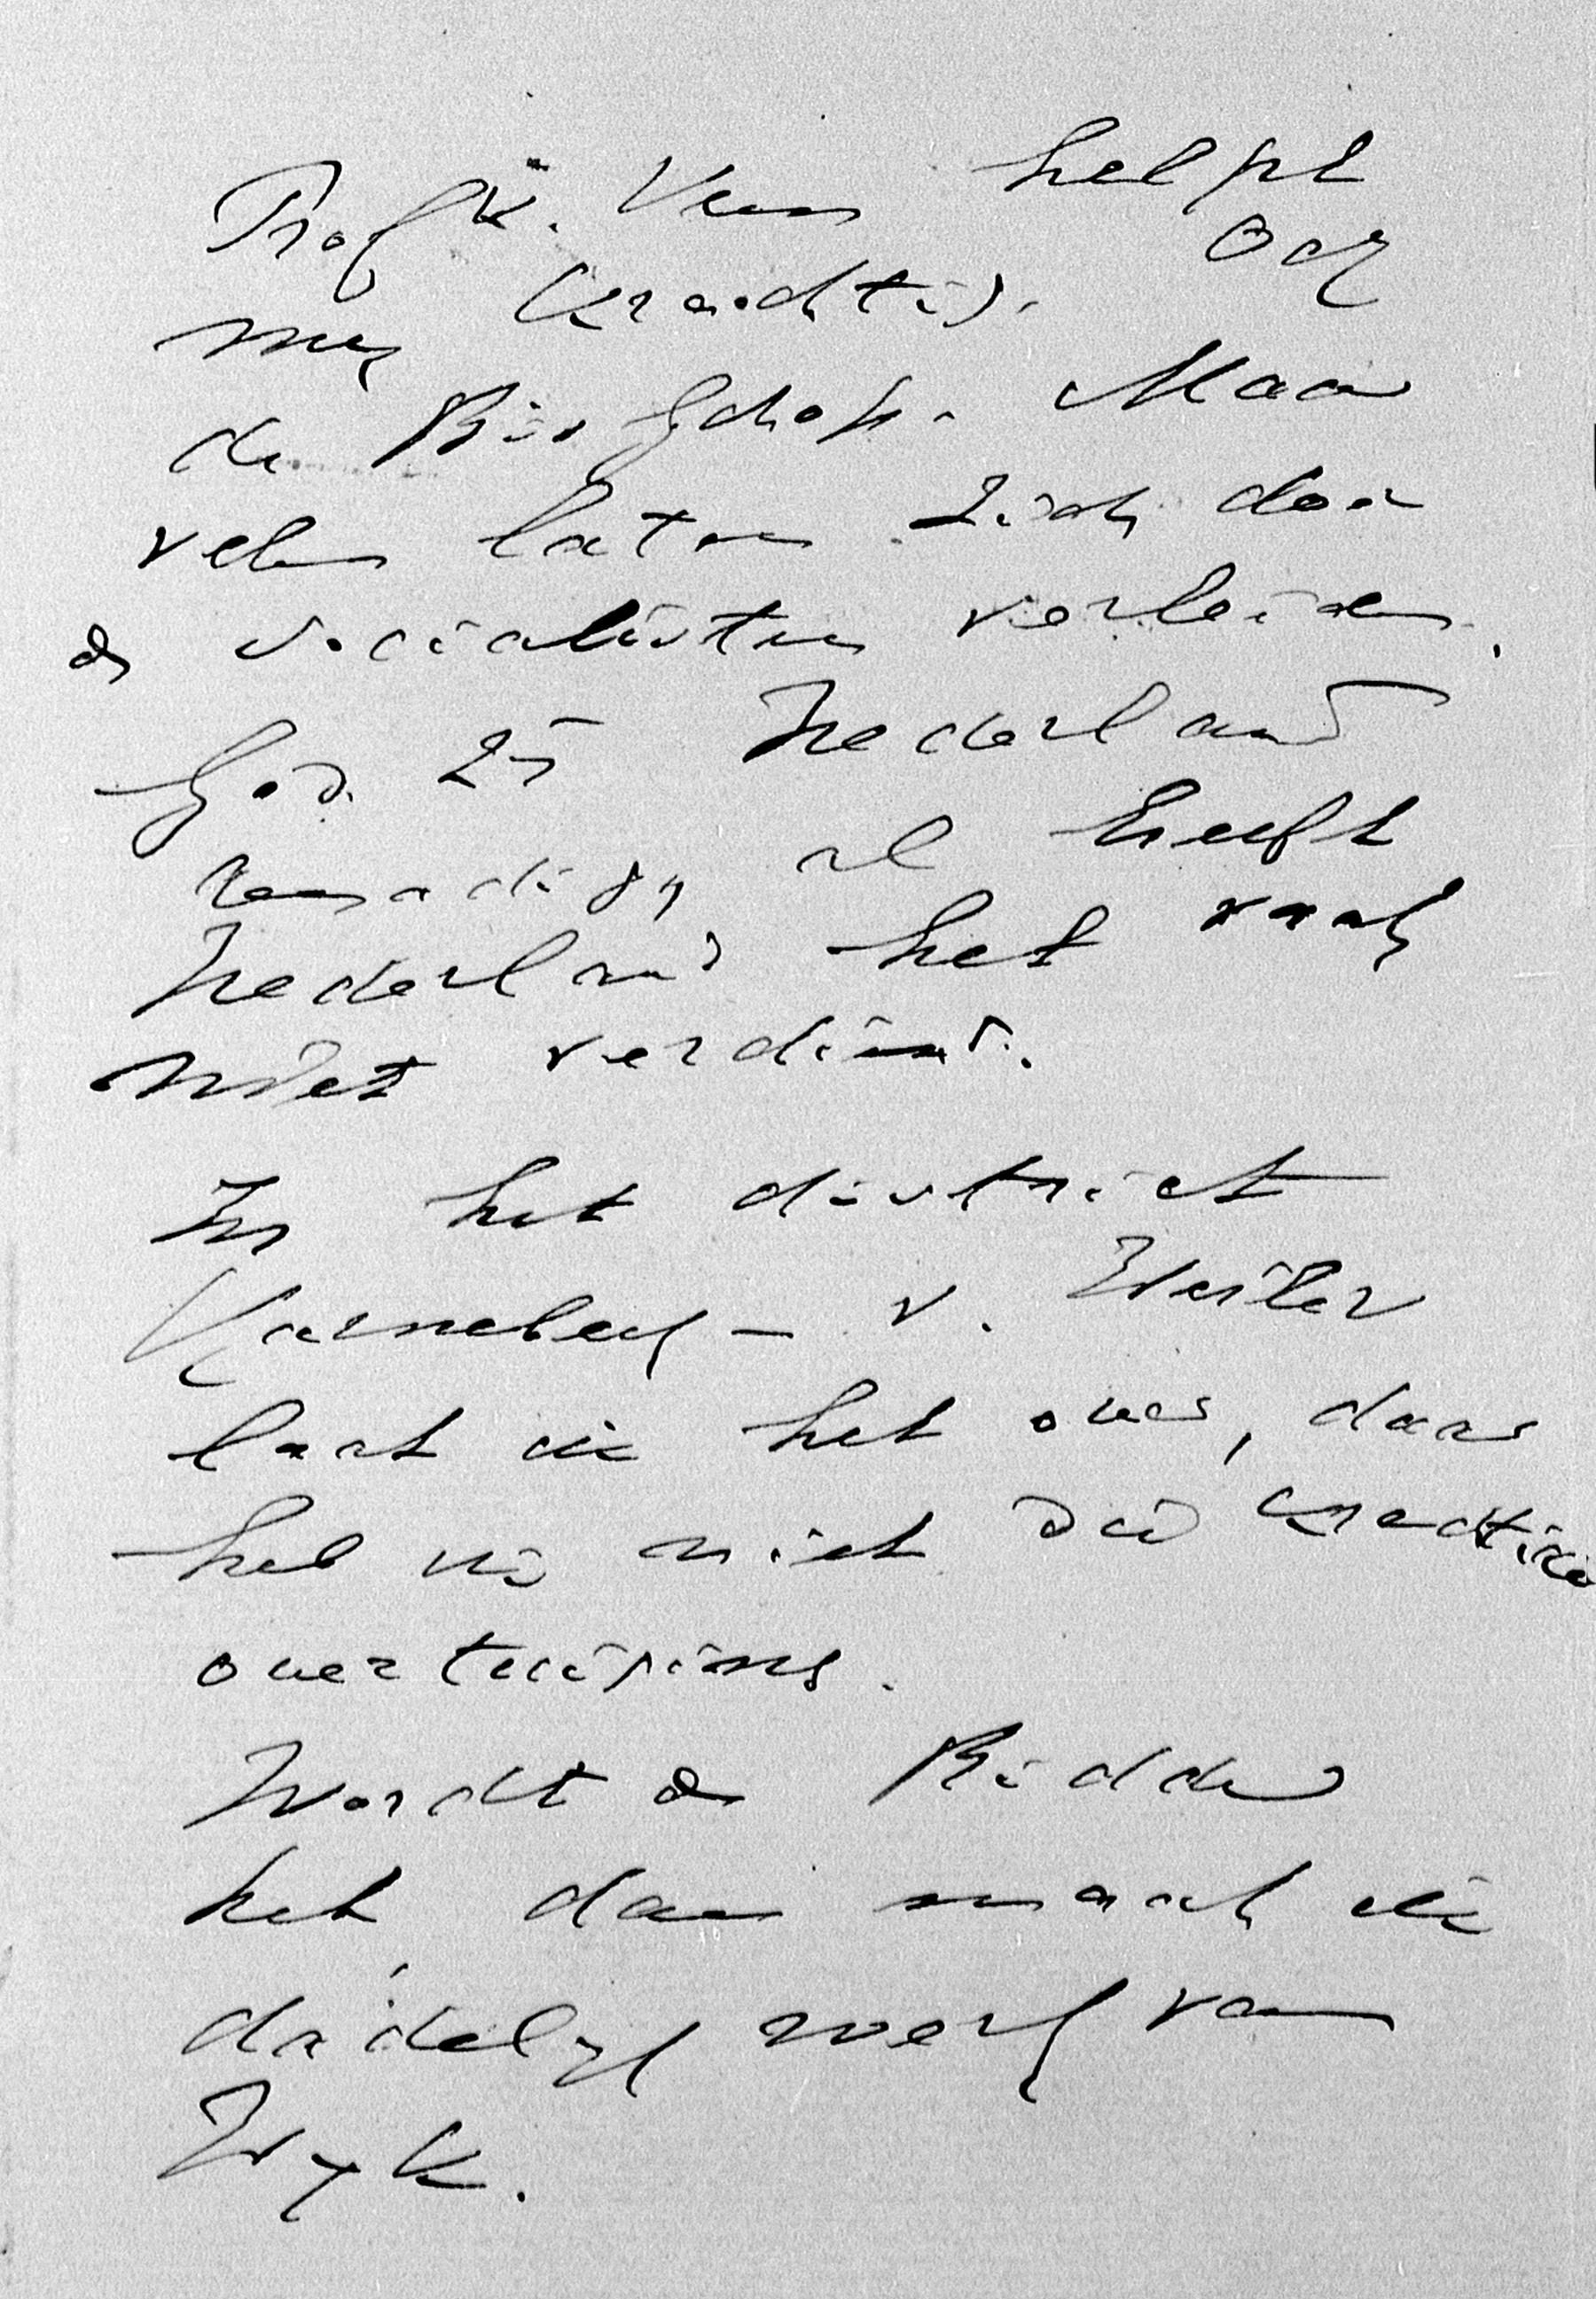 Prof v. Veen helpt
mij krachtig. Ook
de Bisschop. Maar
velen laten zich door
de socialisten verleiden.
God zij Nederland
genadig, al heeft
Nederland het vaak
niet verdiend.
In het district
Karnebeek – v. Weiler
laat ik het over, daar
heb ik niet die krachtige
overtuiging.
Wordt de Ridder
het dan maak ik
dadelijk werk van
Wijk.